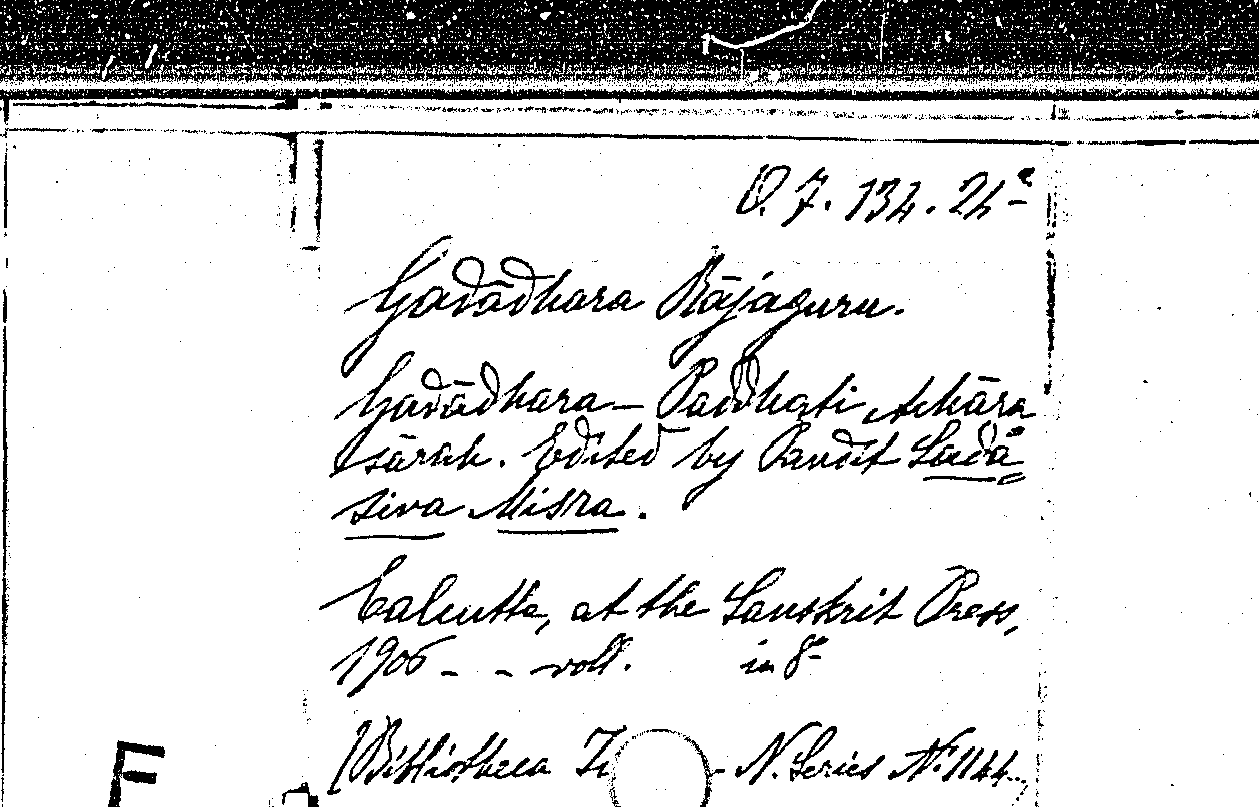 O. 7. 134. 24ª
Gadādhara Rājaguru.
Gadādhara – Paddhati Achāra
sārah. Edited by Pandit Sadā
siva Misra.
Calcutta, at the Sanskrit Press,
1906 - - voll. in 8º
(Bibliotheca - N. Series Nº 1144
F